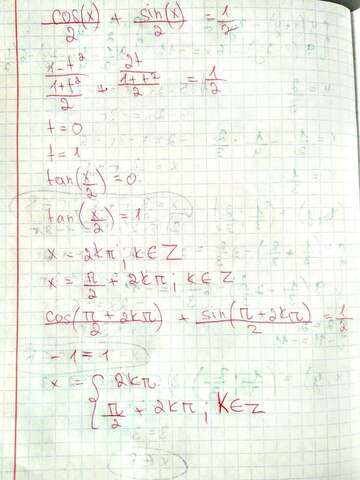 cos(x)/2 + sin(x)/2 = 1/2
((1-t²)/(1+t²))/2 + (2t/(1+t²))/2 = 1/2
t = 0
t = 1
tan(x/2) = 0
tan(x/2) = 1
x = 2kπ; k∈Z
x = π/2 + 2kπ; k∈Z
cos(π + 2kπ)/2 + sin(π + 2kπ)/2 = 1/2
-1 = 1
x = { 2kπ
π/2 + 2kπ; K∈Z